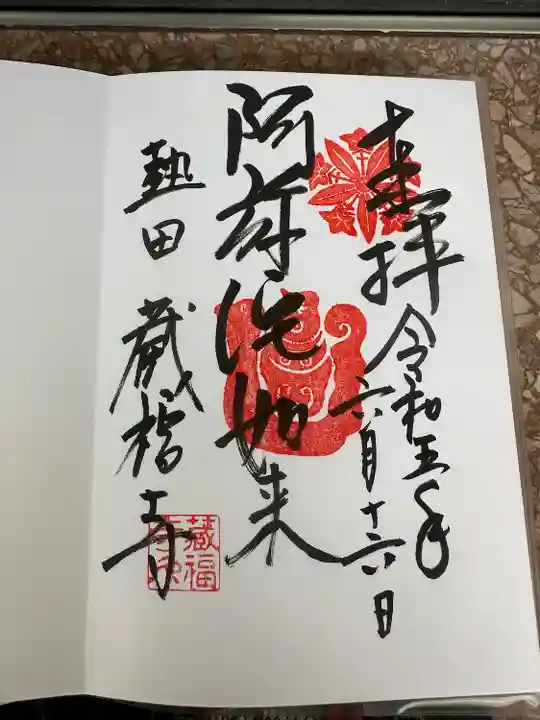 奉拝
令和五年
六月十六日
阿弥陀如来
熱田 蔵福寺
蔵福
寺印